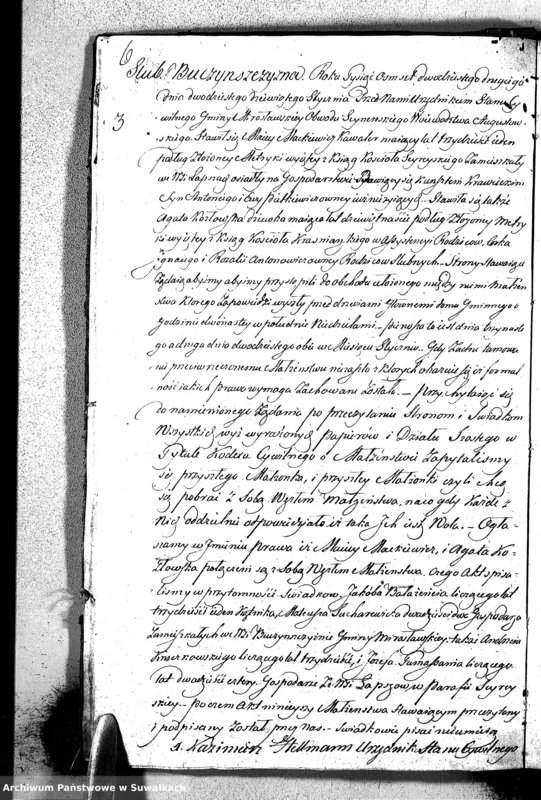 6
Slub. Buczynszczyzna. Roku Tysiąc Osmset dwudziestego drugiego
3
dnia dwudziestego dziewiątego Stycznia Przed Nami Urzędnikiem Stanu Cy
wilnego Gminy Mirosławskiey Obwodu Seynenskiego Woiewodztwa Augustow
skiego. Stawił się Maciey Mackiewicz Kawaler maiący lat trzydzieści ieden
podług złożoney Metryki wyiętey z Ksiąg Kościoła Seyryskiego Zamieszkały
we Wsi Łapszach osiadły na Gospodarstwie
Syn Antoniego i Ewy
Agata Kozłowska dziewka maiąca lat dziewiętnaście podług złożoney Metry
ki wyiętey z Ksiąg Kościoła w Assystencyi Rodziców, Córka
Ignacego i Rozalii Antonowiczowney Rodziców Slubnych. Strony Stawaiące
Żądaią abyśmy przystąpili do obchodu ułożonego między niemi Małżeń
stwa którego Zapowiedzi wyszły przed drzwiami Głównemi domu Gminnego o
godzinie dwónastey w południe Niedzielami. Pierwsza to iest dnia trzynaste
go a druga dnia dwudziestego obie w Miesiącu Styczniu. Gdy żadne tamowa
nie przeciw rzeczonemu Małżeństwu niezaszło z których okazuie się iż formal
ność iakich prawo wymaga Zachowane Zostały. Przychylaiąc się
do namienionego Żądania po przeczytaniu Stronom i Swiadkom
Wszystkich wyż wyrażonych Papierów i Działu Szóstego w
Tytule Kodexu Cywilnego o Małżeństwie Zapytaliśmy
się przyszłego Małżonka, i przyszłey Małżonki czyli chcą
się pobrać z Sobą Węzłem Małżeństwa, na co gdy Każde z
Nich oddzielnie odpowiedziało iż taka Jch iest Wola. Ogła
szamy w Jmieniu prawa iż Maciey Mackiewicz, i Agata Ko
złowska połączeni są z Sobą Węzłem Małżeństwa. Czego Akt spisa
liśmy w przytomności Swiadków. Jakóba liczącego lat
trzydzieści ieden, Mateusza Sucharzewicza dwadzieścia dwa Gospodarza
Zamieszkałych we Wsi Buczynszczyznie Gminy Mirosławskiey także Andrzeia
liczącego lat trzydzieści, i Józefa liczącego
lat dwadzieścia cztery, Gospodarze Ze Wsi Łapszów w Parafii Seyry
skiey. poczem Akt ninieyszy Małżeństwa Stawaiącym przeczytany
i podpisany Został, przez nas. Swiadkowie pisać nieumieią
X. Kazimierz Hellmann Urzędnik Stanu Cywilnego
Archiwum Państwowe w Suwałkach